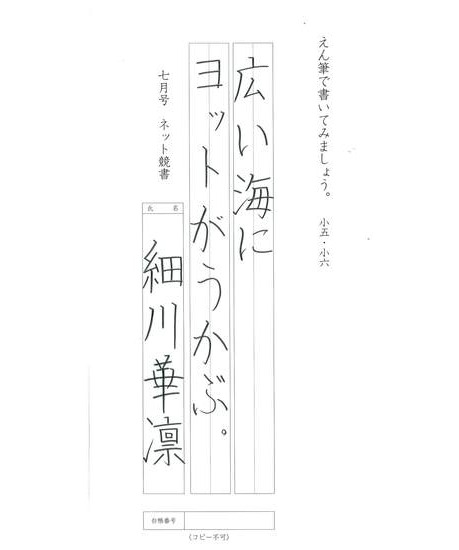 えん筆で書いてみましょう。 小五・小六
広い海に
ヨットがうかぶ。
七月号 ネット競書
氏名
細川華凛
台帳番号
(コピー不可)